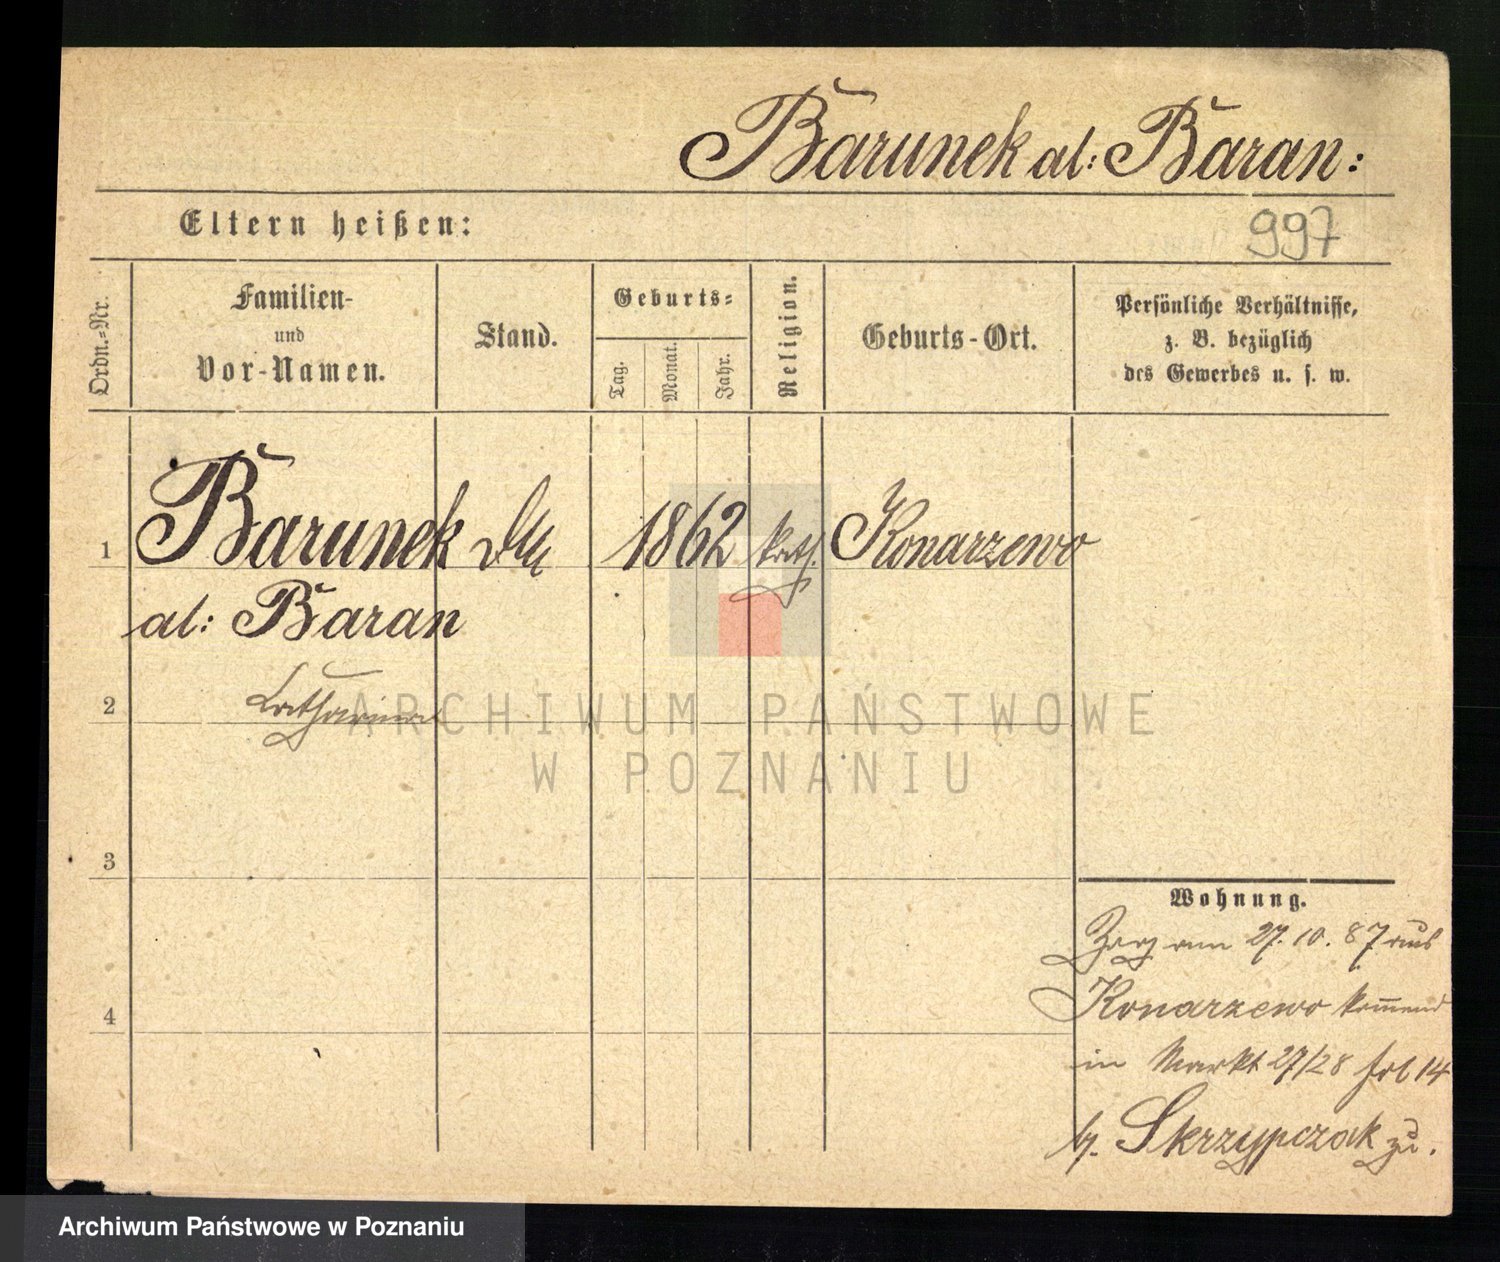 Barunek al: Baran:
Eltern heißen:
997
Ordn.-Nr.
Familien-
und
Vor-Namen.
Stand.
Geburts-
Tag.
Monat.
Jahr.
Religion.
Geburts-Ort.
Persönliche Verhältnisse,
z. B. bezüglich
des Gewerbes u. s. w.
1
Barunek
1862
kath.
Konarzewo
al: Baran
2
Catharina
ARCHIWUM PAŃSTWOWE
W POZNANIU
3
Wohnung.
Zezg am 27. 10. 87 aus
4
Konarzewo kom̅end
in Markt 27/28
14
b. Skrzypczak zu.
Archiwum Państwowe w Poznaniu